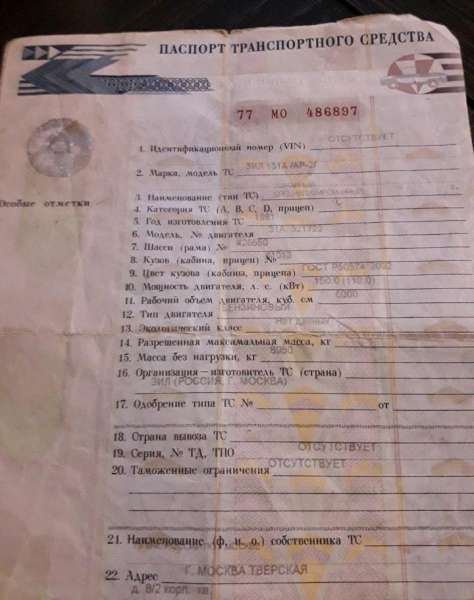 ПАСПОРТ ТРАНСПОРТНОГО СРЕДСТВА
77 МО 486897
1. Идентификационный номер (VIN) ОТСУТСТВУЕТ
2. Марка, модель ТС ЗИЛ
3. Наименование (тип ТС)
Особые отметки
4. Категория ТС (A, B, C, D, прицеп)
5. Год изготовления ТС 1981
6. Модель, № двигателя
7. Шасси (рама) №
8. Кузов (кабина, прицеп) №
9. Цвет кузова (кабины, прицепа) ГОСТ
10. Мощность двигателя, л. с. (кВт) 150.0 (110.0)
11. Рабочий объем двигателя, куб. см 6000
12. Тип двигателя БЕНЗИНОВЫЙ
13. Экологический класс
14. Разрешенная максимальная масса, кг
15. Масса без нагрузки, кг
16. Организация—изготовитель ТС (страна)
ЗИЛ (РОССИЯ, Г. МОСКВА)
17. Одобрение типа ТС № от
18. Страна вывоза ТС
19. Серия, № ТД, ТПО ОТСУТСТВУЕТ
20. Таможенные ограничения ОТСУТСТВУЕТ
21. Наименование (ф. и. о.) собственника ТС
22. Адрес Г. МОСКВА ТВЕРСКАЯ
д. 8/2 корп. кв.